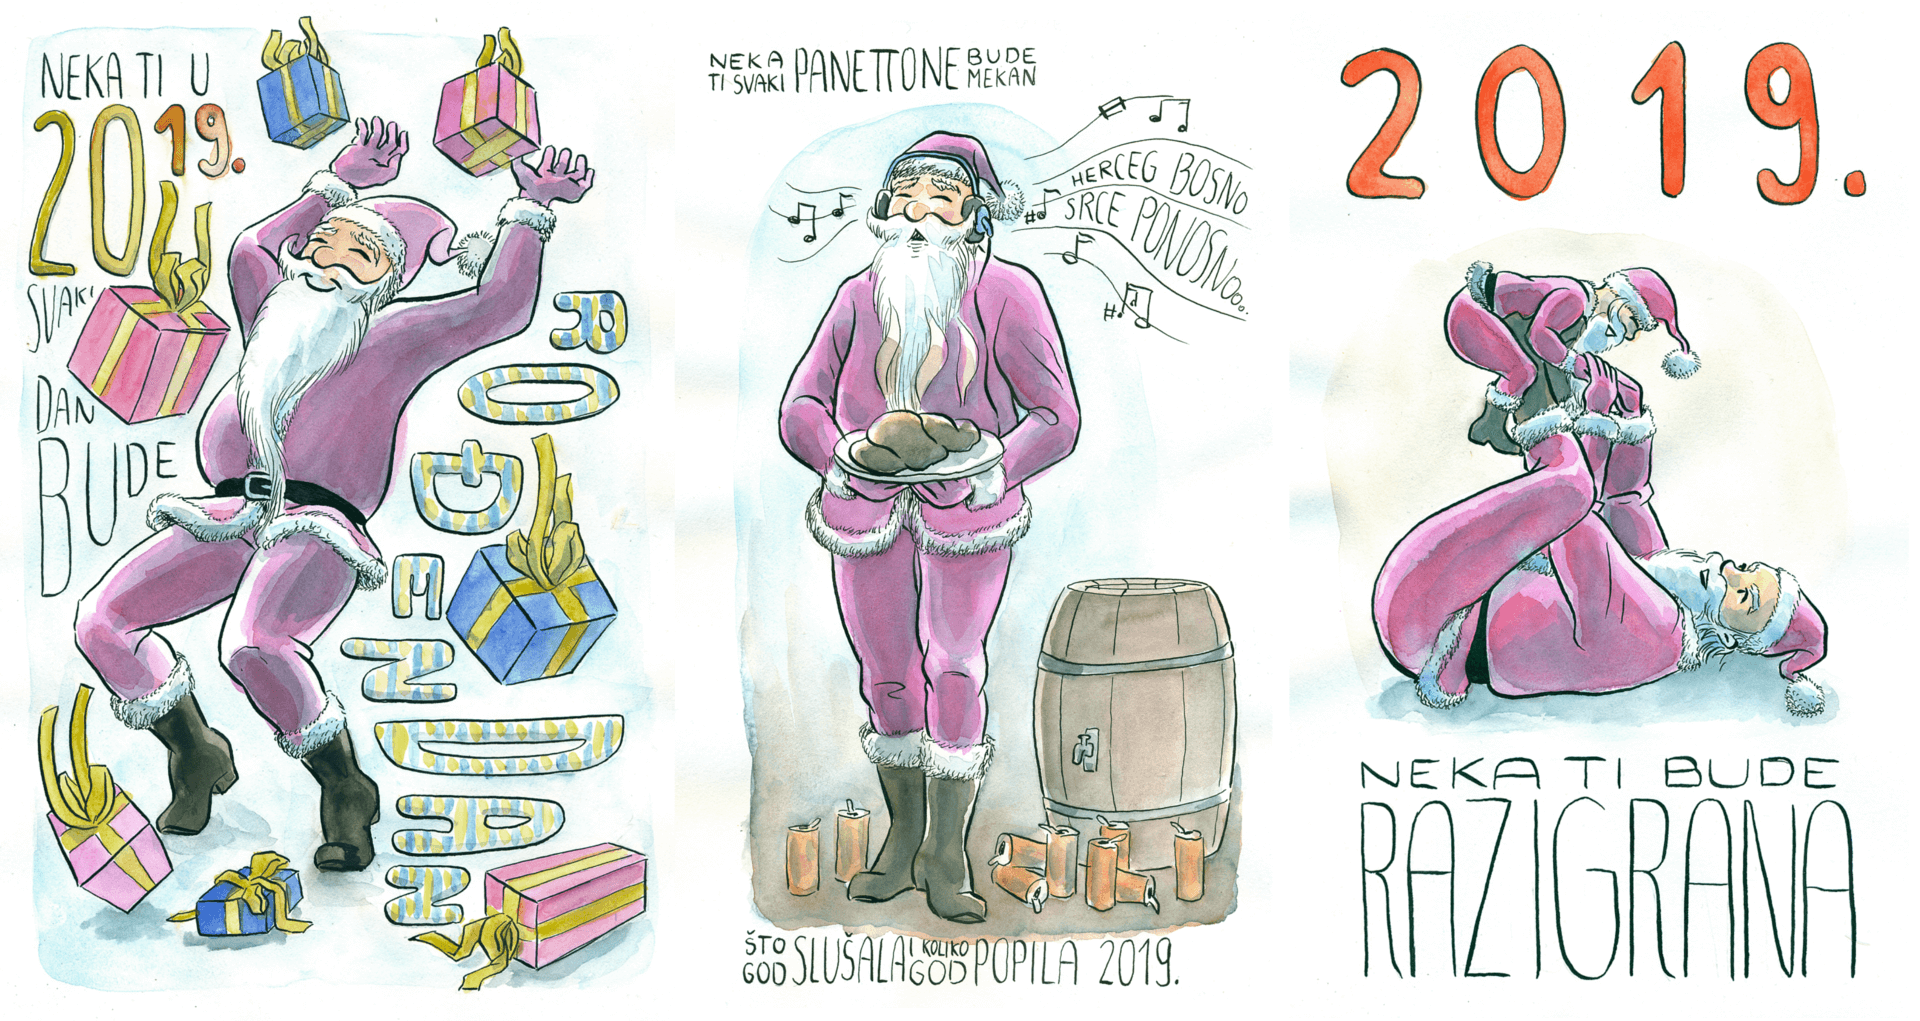 NEKA TI U
2019.
SVAKI
DAN
BUDE
ROĐENDAN
NEKA
TI SVAKI
PANETTONE
BUDE
MEKAN
HERCEG BOSNO
SRCE PONOSNOOO..
ŠTO
GOD
SLUŠALA
I KOLIKO
GOD
POPILA 2019.
2019.
NEKA TI BUDE
RAZIGRANA